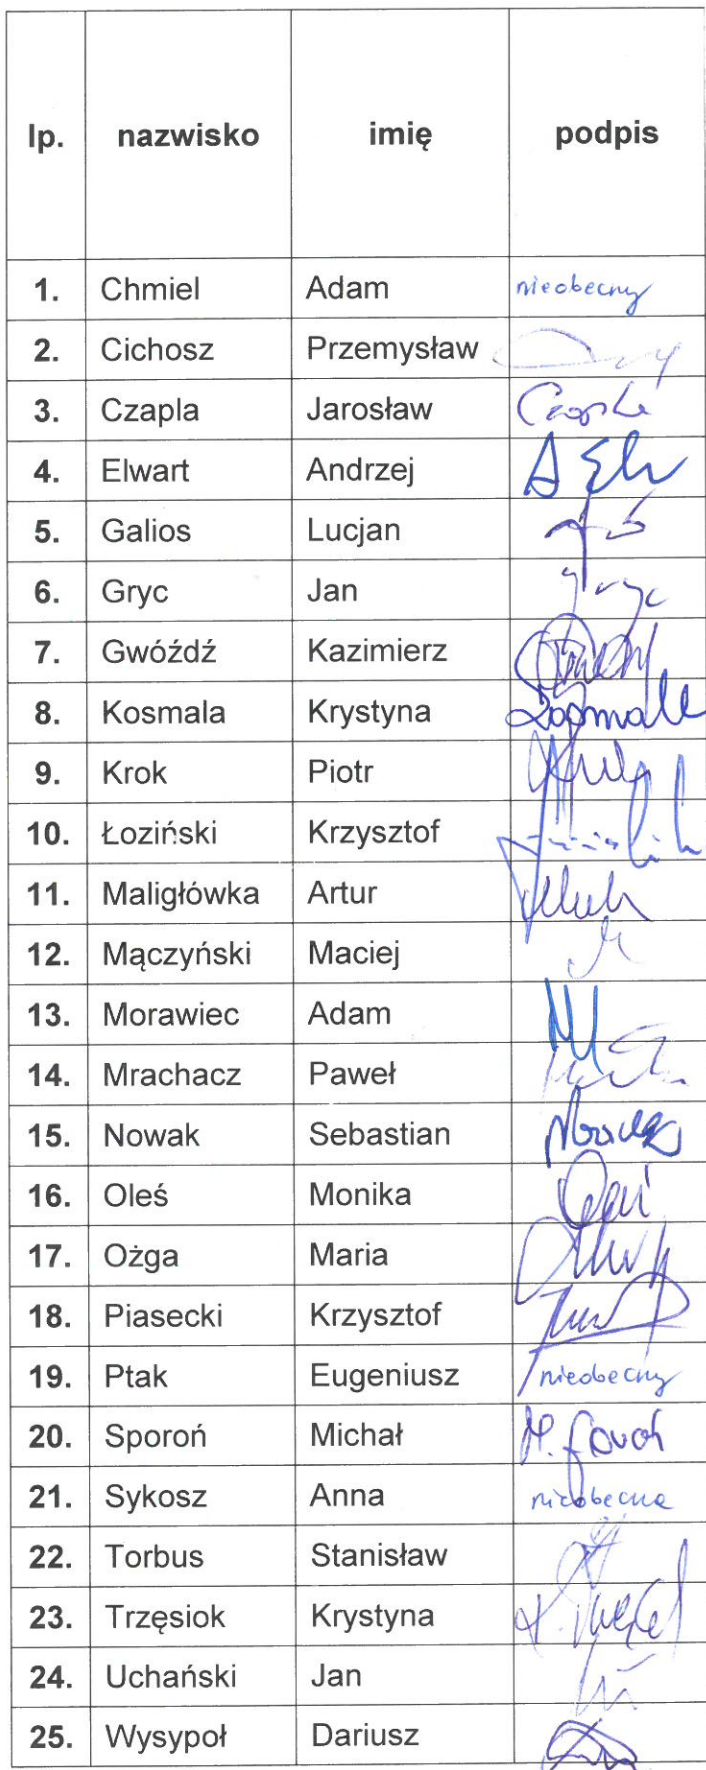 lp. nazwisko imię podpis
1. Chmiel Adam nieobecny
2. Cichosz Przemysław
3. Czapla Jarosław
4. Elwart Andrzej
5. Galios Lucjan
6. Gryc Jan
7. Gwóźdź Kazimierz
8. Kosmala Krystyna
9. Krok Piotr
10. Łoziński Krzysztof
11. Maligłówka Artur
12. Mączyński Maciej
13. Morawiec Adam
14. Mrachacz Paweł
15. Nowak Sebastian
16. Oleś Monika
17. Ożga Maria
18. Piasecki Krzysztof
19. Ptak Eugeniusz nieobecny
20. Sporoń Michał
21. Sykosz Anna nieobecna
22. Torbus Stanisław
23. Trzęsiok Krystyna
24. Uchański Jan
25. Wysypoł Dariusz